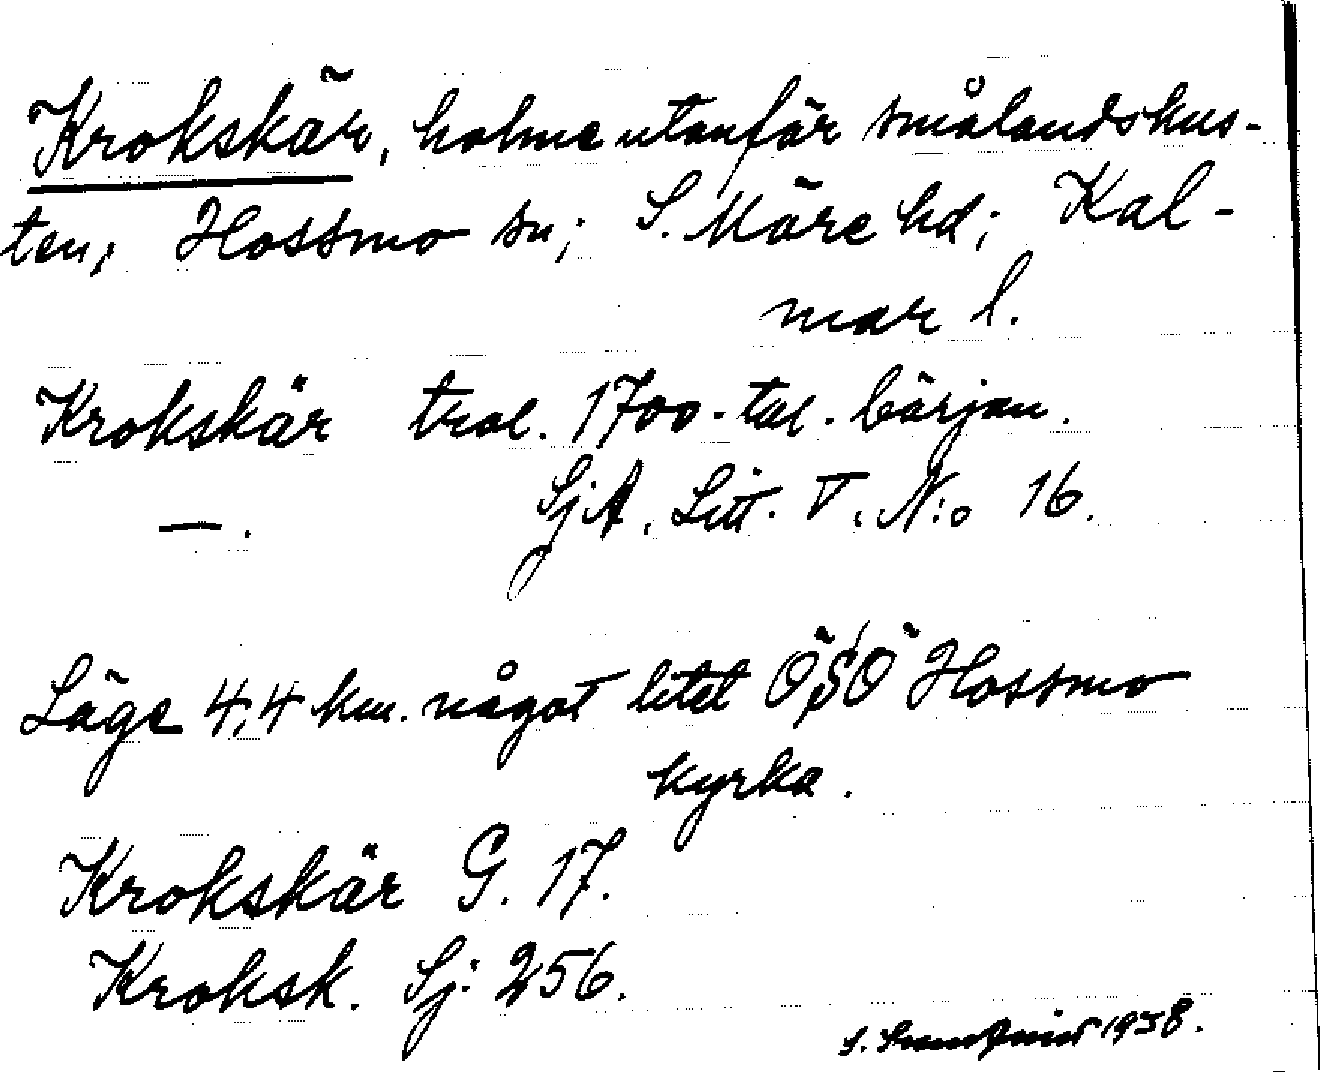 Krokskär, holme utanför smålandskus-
ten, Hossmo sn; S. Möre hd; Kal-
mar l.
Krokskär trol. 1700-tal. början.
—. SjA. Litt. V. N:o 16.
Läge 4,4 km. något litet ÖSÖ Hossmo
kyrka.
Krokskär G. 17.
Kroksk. Sj: 256.
S. 1938.